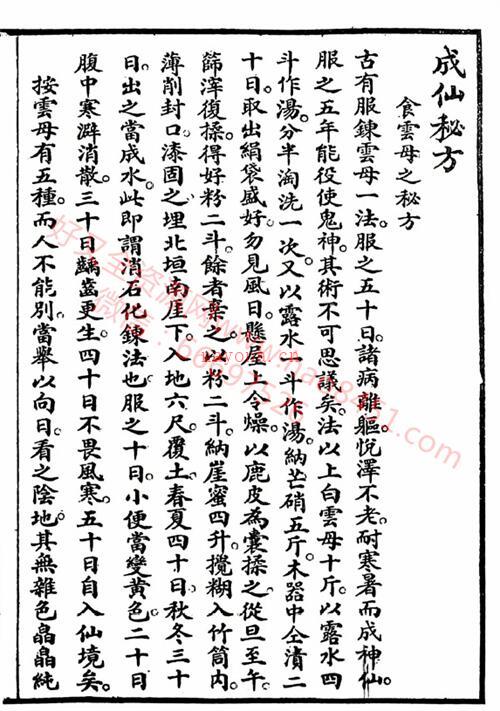 成仙秘方
食雲母之秘方
古有服鍊雲母一法。服之五十日。諸病離軀。悅澤不老。耐寒暑而成神仙。
服之五年。能役使鬼神。其術不可思議矣。法以上白雲母十斤。以露水四
斗作湯。分半淘洗一次。又以露水一斗作湯。納芒硝五斤。木器中仝漬二
十日。取出絹袋盛好。勿見風日。懸屋上令燥。以鹿皮為囊揉之。從旦至午。
篩滓復揉。得好粉二斗。餘者棄之。以粉二斗。納崖蜜四升。攪糊入竹筒内。
薄削封口。漆固之。埋北垣南崖下。入地六尺。覆土。春夏四十日。秋冬三十
日。出之當成水。此即謂消石化鍊法也。服之十日。小便當變黃色。二十日
腹中寒澼消散。三十日齲齒更生。四十日不畏風寒。五十日自入仙境矣。
按雲母有五種。而人不能別。當舉以向日。看之陰地。其無雜色。晶晶純
nayona.cn